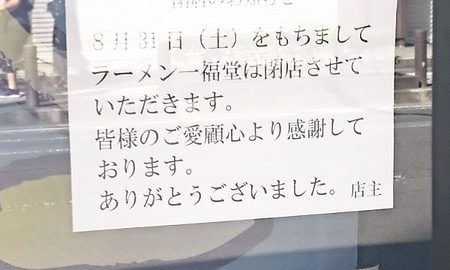 閉店のお知らせ
8月31日（土）をもちまして
ラーメン一福堂は閉店させて
いただきます。
皆様のご愛顧心より感謝して
おります。
ありがとうございました。店主